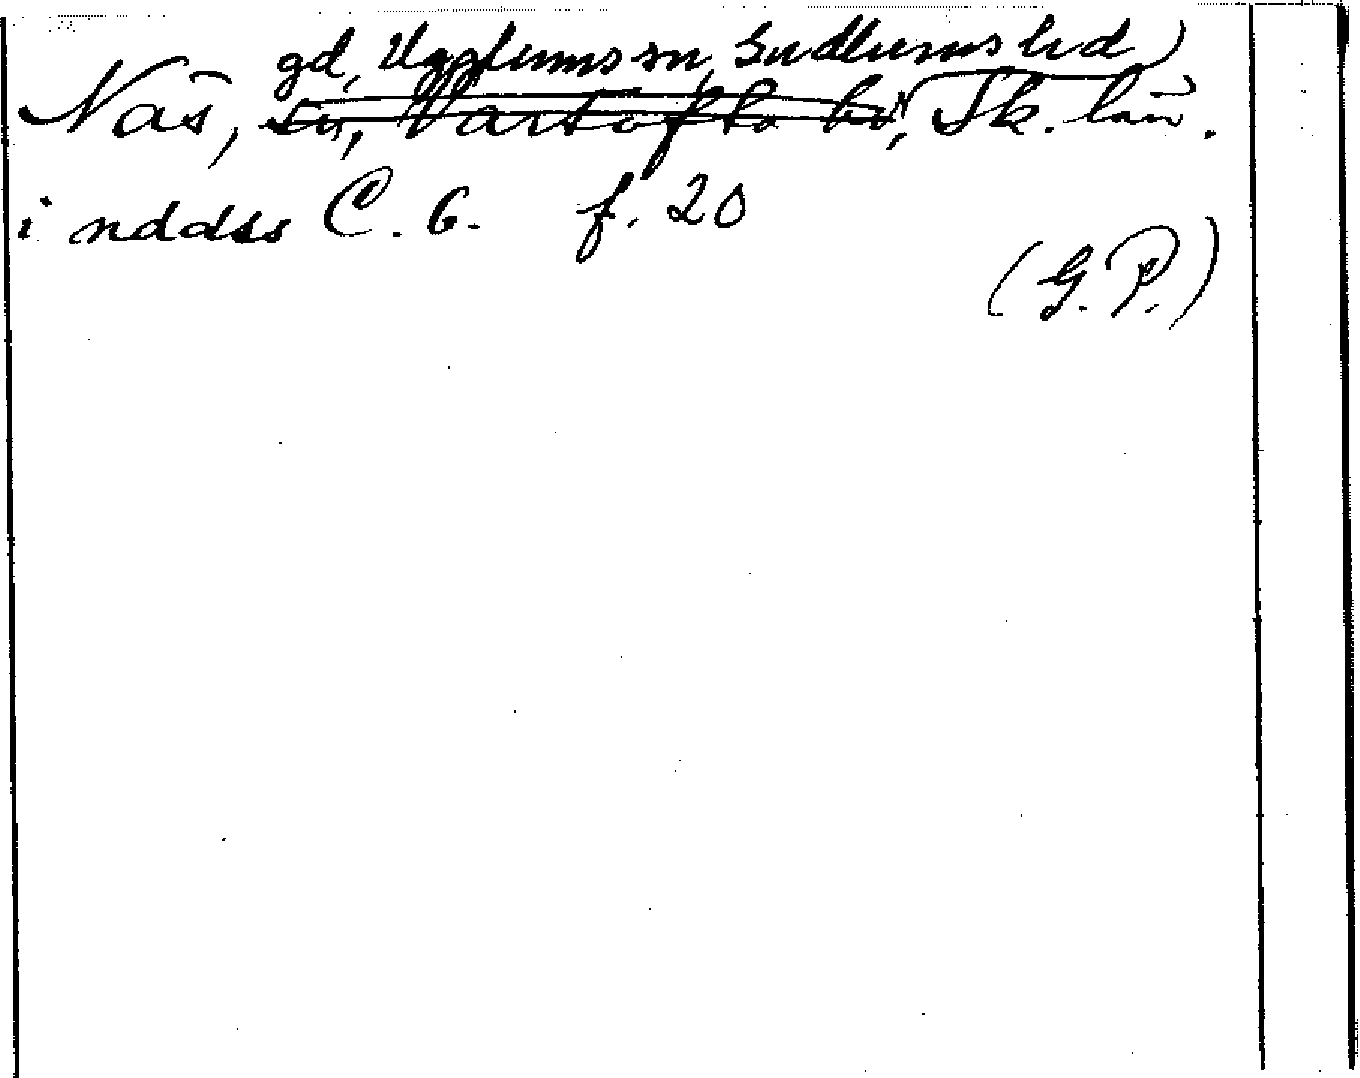 gd, Ugglums sn, Gudhems hd
Näs, sn, Vartofta hd, Sk. län.
i nddss C. 6. f. 20
(G. P.)